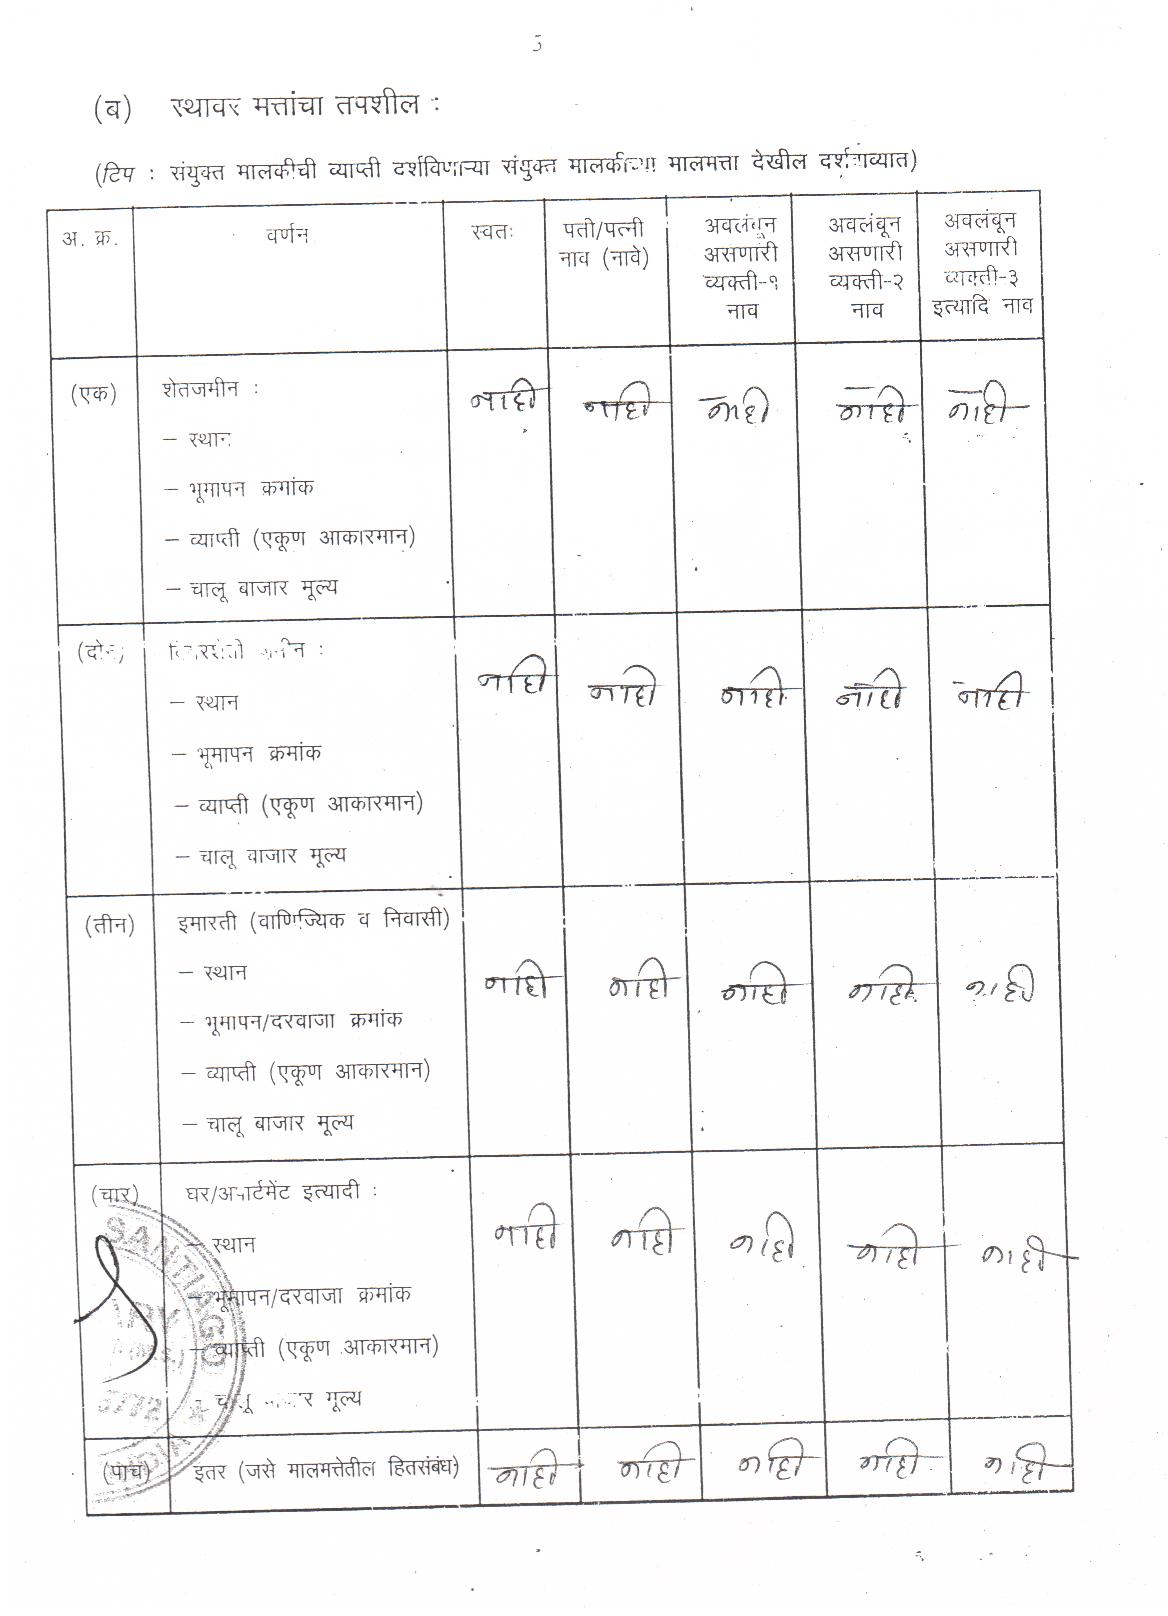 5
(ब) स्थावर मत्तांचा तपशील :
(टिप : संयुक्त मालकीची व्याप्ती दर्शविणाऱ्या संयुक्त मालकीच्या मालमत्ता देखील दर्शवाव्यात)
अ. क्र. वर्णन स्वतः पती/पत्नी नाव (नावे) अवलंबून असणारी व्यक्ती-१ नाव अवलंबून असणारी व्यक्ती-२ नाव अवलंबून असणारी व्यक्ती-३ इत्यादि नाव
(एक) शेतजमीन : नाही नाही नाही नाही नाही
– स्थान
– भूमापन क्रमांक
– व्याप्ती (एकूण आकारमान)
– चालू बाजार मूल्य
(दोन) : नाही नाही नाही नाही नाही
– स्थान
– भूमापन क्रमांक
– व्याप्ती (एकूण आकारमान)
– चालू बाजार मूल्य
(तीन) इमारती (वाणिज्यिक व निवासी) नाही नाही नाही नाही नाही
– स्थान
– भूमापन/दरवाजा क्रमांक
– व्याप्ती (एकूण आकारमान)
– चालू बाजार मूल्य
(चार) घर/अपार्टमेंट इत्यादी : नाही नाही नाही नाही नाही
– स्थान
– भूमापन/दरवाजा क्रमांक
– व्याप्ती (एकूण आकारमान)
– चालू बाजार मूल्य
(पाच) इतर (जसे मालमत्तेतील हितसंबंध) नाही नाही नाही नाही नाही
SANTIAGO